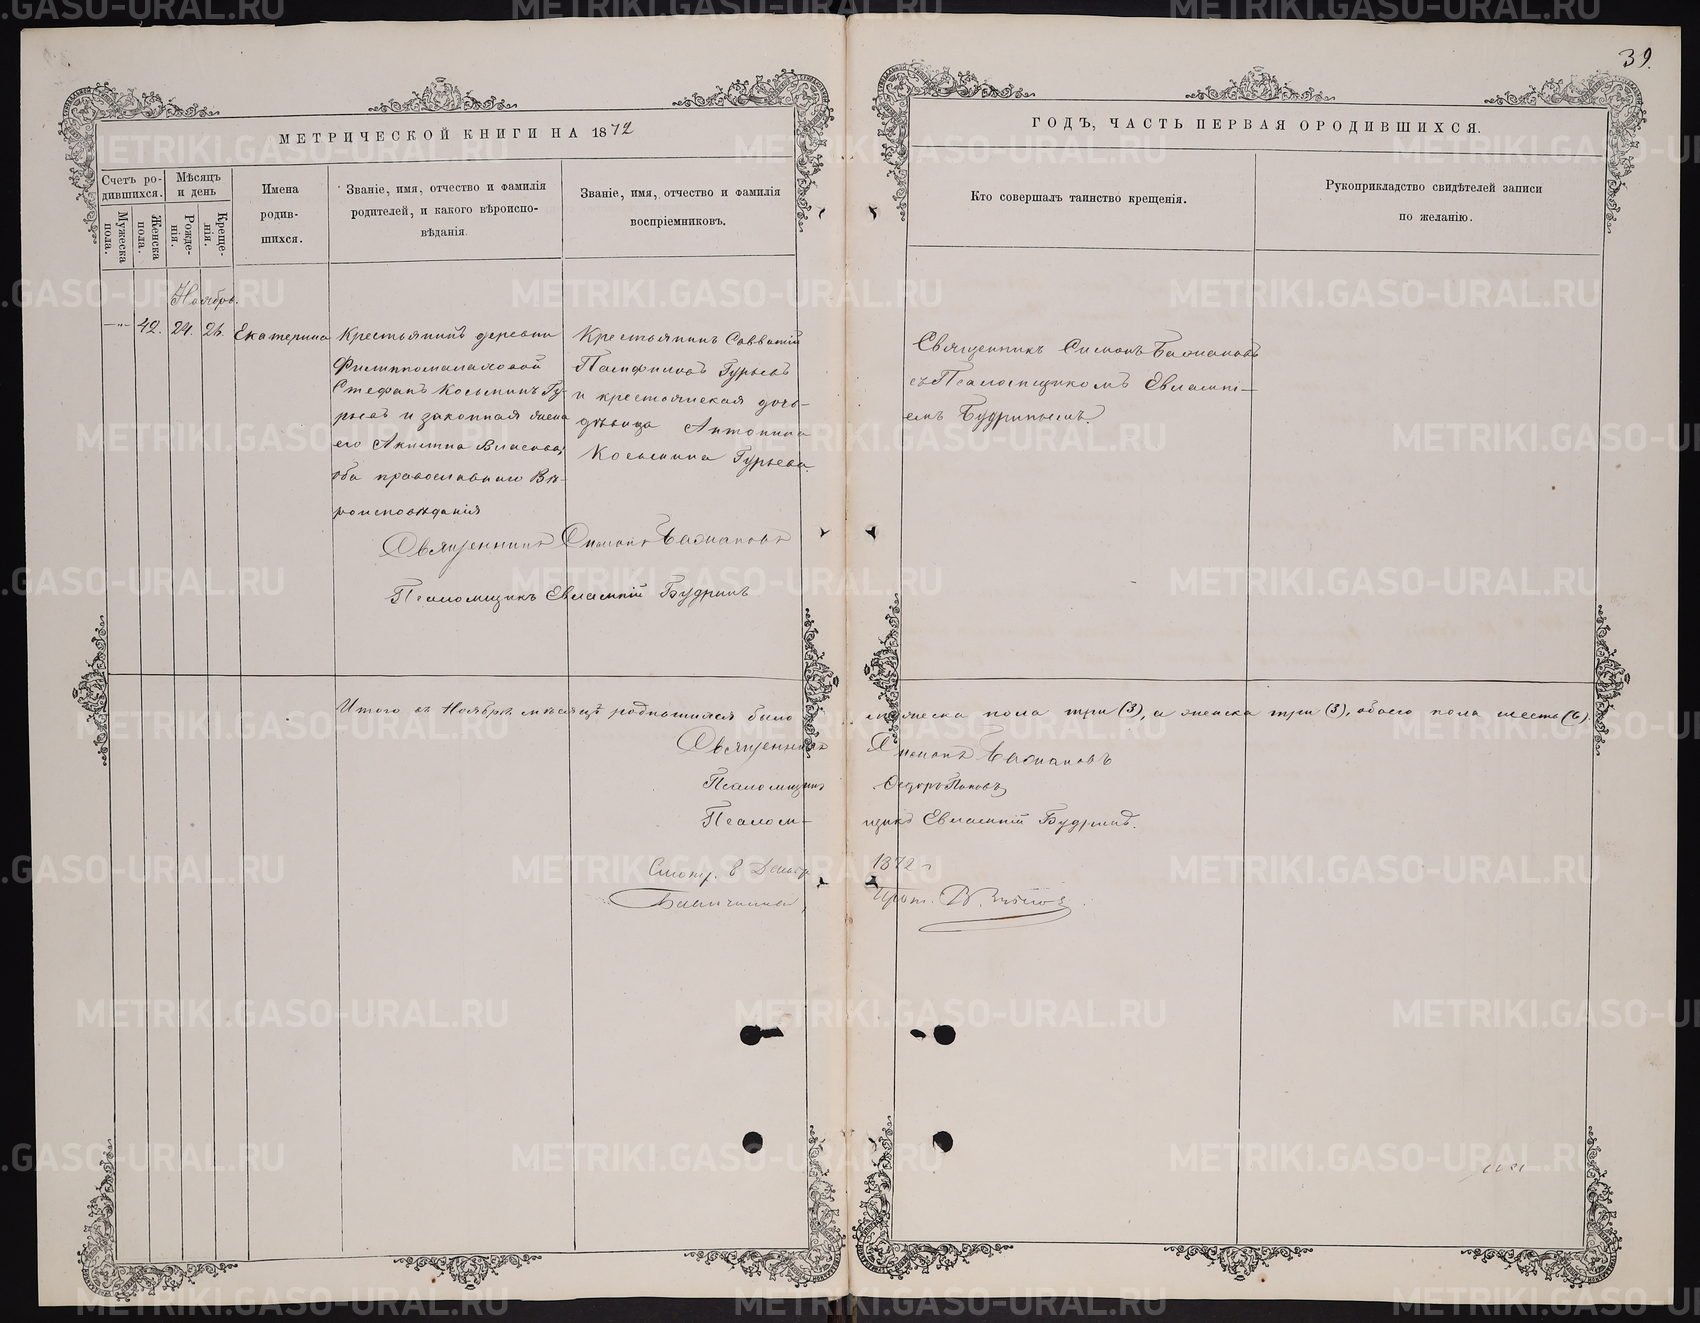 39.
МЕТРИЧЕСКОЙ КНИГИ НА 1872
ГОДЪ, ЧАСТЬ ПЕРВАЯ О РОДИВШИХСЯ.
Счетъ ро-
дившихся.
Мужеска
пола.
Женска
пола.
Мѣсяцъ
и день
Рожде-
нія.
Креще-
нія.
Имена
родив-
шихся.
Званіе, имя, отчество и фамилія
родителей, и какого вѣроиспо-
вѣданія.
Званіе, имя, отчество и фамилія
воспріемниковъ.
Кто совершалъ таинство крещенія.
Рукоприкладство свидѣтелей записи
по желанію.
Ноябрь.
—"— 42. 24. 26. Екатерина
Крестьянинъ деревни
Филиппомалаховой
Стефанъ Косьминъ Гу-
рьевъ и законная жена
его Акилина Власова,
оба православнаго Вѣ-
роисповѣданія
Крестьянинъ Савватій
Памфиловъ Гурьевъ
и крестьянская дочь-
дѣвица Антонина
Косьмина Гурьева.
Священникъ Симонъ
съ Псаломщикомъ Евлампі-
емъ Будринымъ.
Священникъ Симонъ
Псаломщикъ Евлампій Будринъ
Итого въ Ноябрѣ мѣсяцѣ родившихся было мужеска пола три (3), а женска три (3), обоего пола шесть (6).
Священникъ Симонъ
Псаломщикъ Ѳедоръ Поповъ
Псалом-щикъ Евлампій Будринъ.
Смотр. в Декабр 1872 г
METRIKI.GASO-URAL.RU